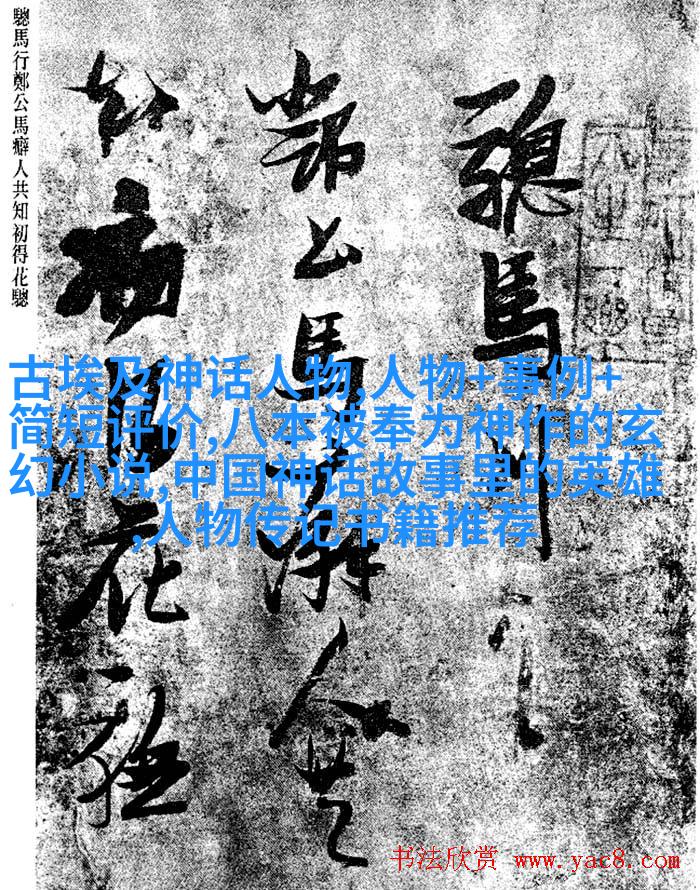 驄馬行
鄭公馬癖人共
知初得花驄
驄馬行鄭公馬癖人共知初得花驄
古埃及神话人物,人物+事例+
简短评价,八本被奉为神作的玄
幻小说,中国神话故事里的英雄
,人物传记书籍推荐
书法欣赏 www.yac8.com